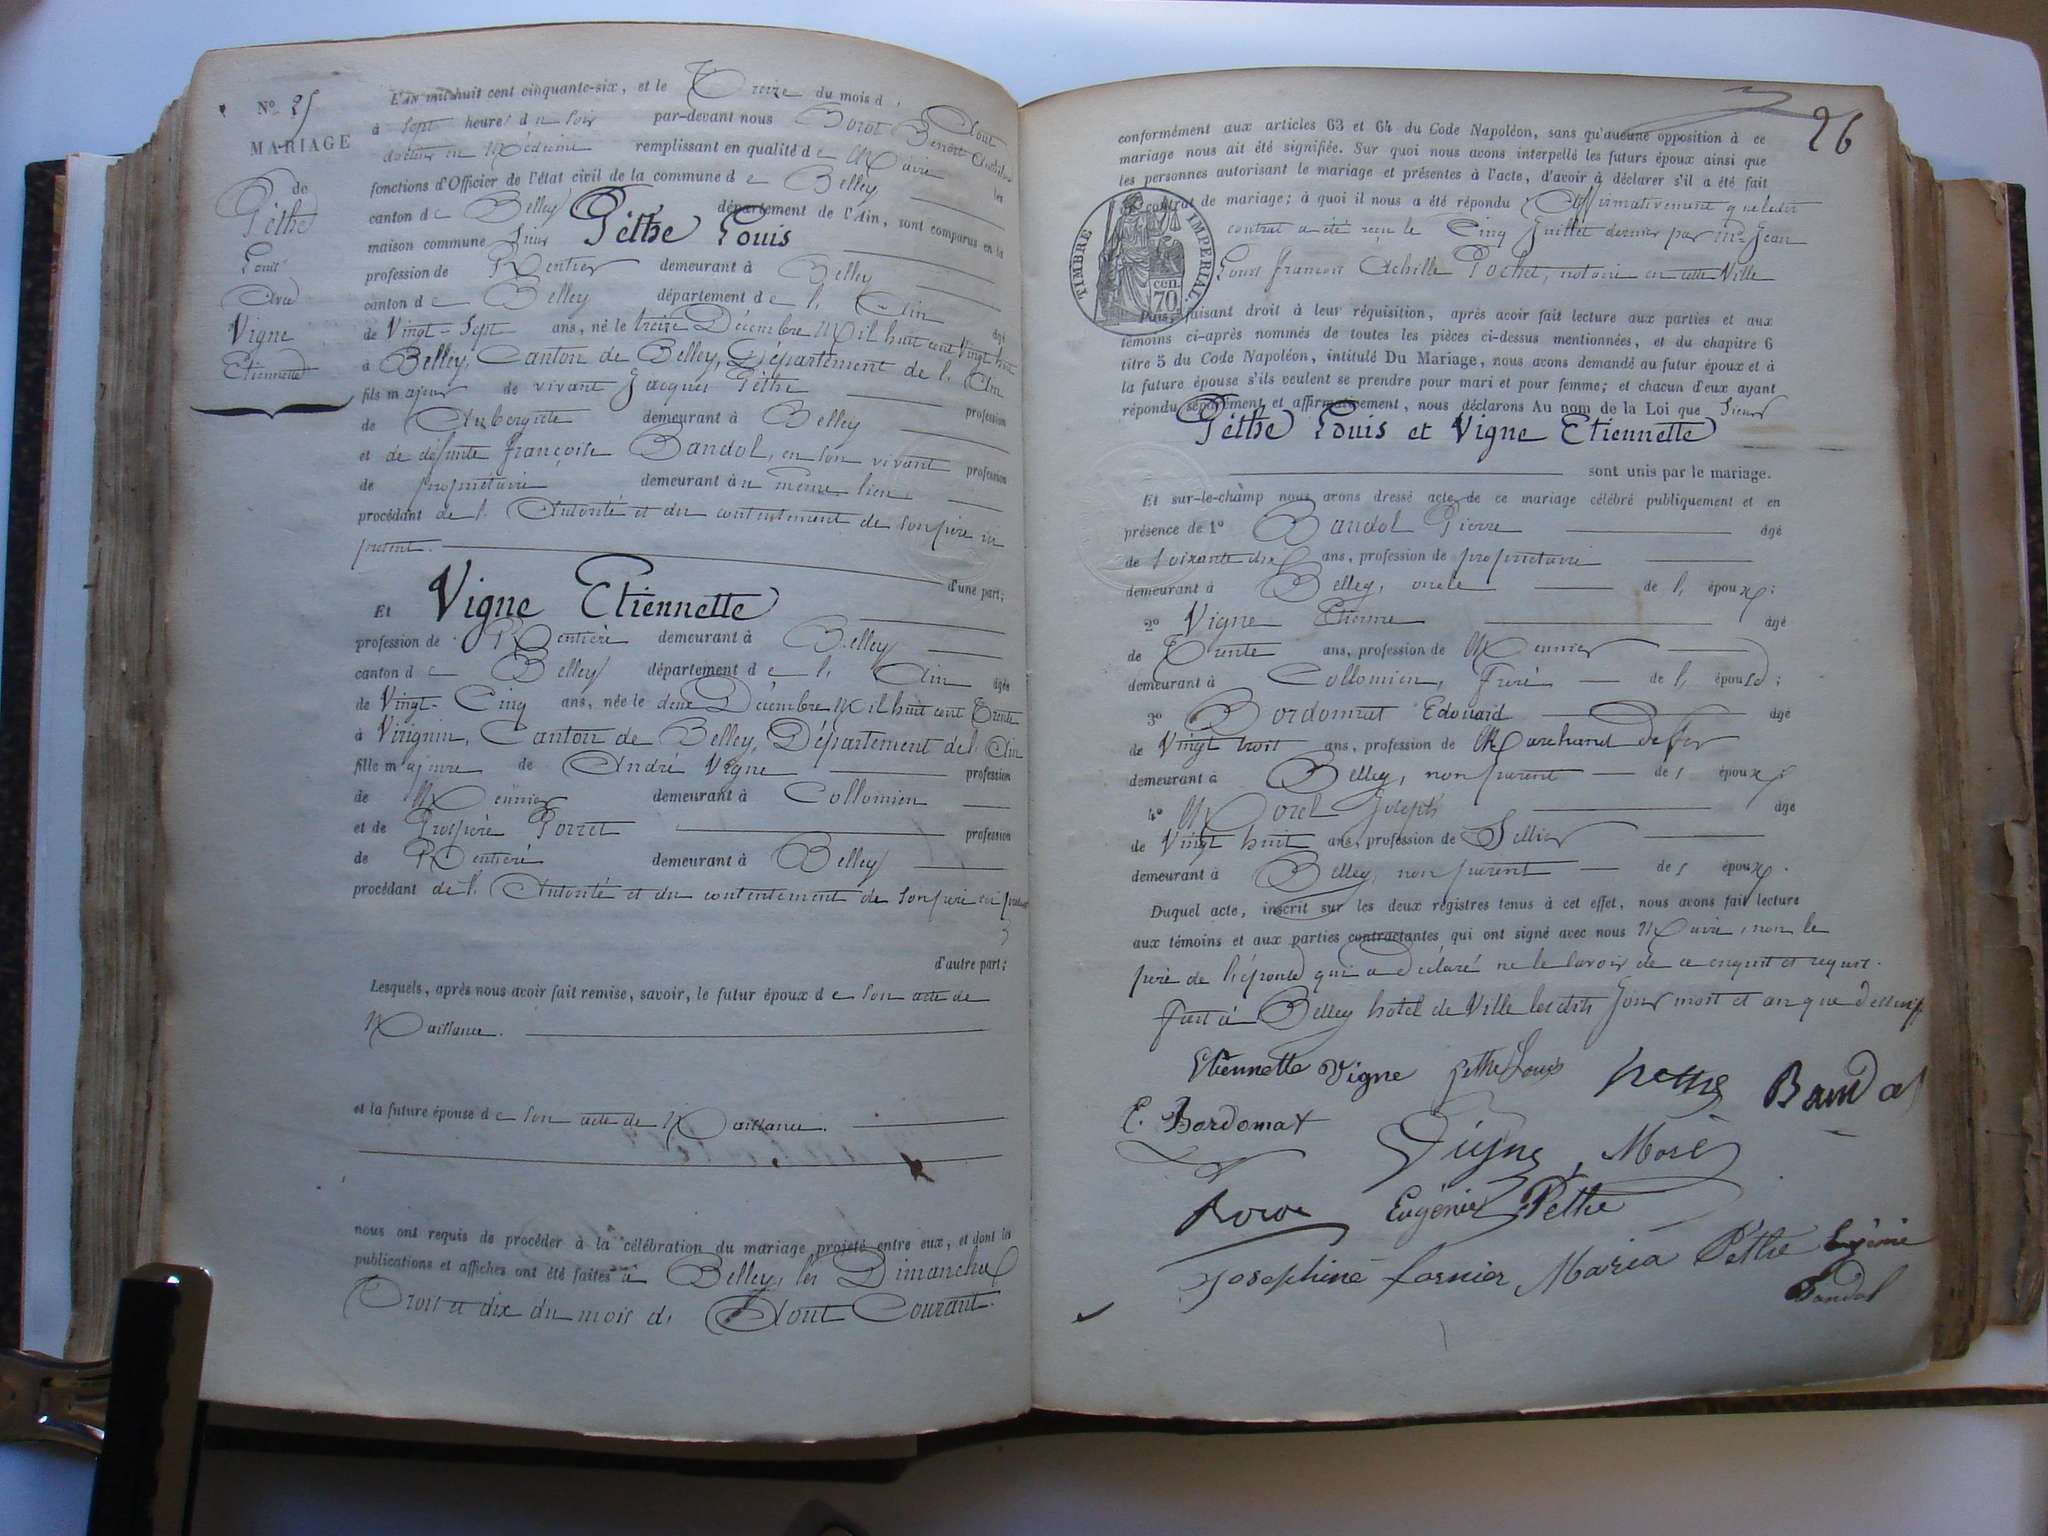 N° 25
MARIAGE
de
Péthe
Louis
Avec
Vigne
Etiennette
L'AN mil huit cent cinquante-six, et le Treize du mois d' Aout
à Sept heures du Soir par-devant nous Benoit Anthelme
docteur en Médecine remplissant en qualité de Maire les
fonctions d'Officier de l'état civil de la commune de Belley,
canton de Belley département de l'Ain, sont comparus en la
maison commune Sieur Péthe Louis
profession de Rentier demeurant à Belley
canton de Belley département de l' Ain âgé
de Vingt-Sept ans, né le treize Décembre Mil huit cent Vingt huit
à Belley, Canton de Belley, Département de l' Ain
fils majeur de vivant Jacques Péthe profession
de Aubergiste demeurant à Belley
et de défunte Françoise Bandol, en son vivant profession
de propriétaire demeurant au même lieu
procédant de l' Autorité et du contentement de son père ici
présent. d'une part;
Et Vigne Etiennette
profession de Rentière demeurant à Belley
canton de Belley département de l' Ain âgée
de Vingt-Cinq ans, née le deux Décembre Mil huit cent Trente
à Virignin, Canton de Belley, Département de l' Ain
fille majeure de André Vigne profession
de Meunier demeurant à Collomieu
et de Prospère Porret profession
de Rentière demeurant à Belley
procédant de l' Autorité et du contentement de son père ici présent
d'autre part;
Lesquels, après nous avoir fait remise, savoir, le futur époux de son acte de
Naissance.
et la future épouse de son acte de Naissance.
nous ont requis de procéder à la célébration du mariage projeté entre eux, et dont les
publications et affiches ont été faites à Belley, les Dimanches
Trois et dix du mois d' Aout Courant.
26
conformément aux articles 63 et 64 du Code Napoléon, sans qu'aucune opposition à ce
mariage nous ait été signifiée. Sur quoi nous avons interpellé les futurs époux ainsi que
les personnes autorisant le mariage et présentes à l'acte, d'avoir à déclarer s'il a été fait
contrat de mariage; à quoi il nous a été répondu Affirmativement que ledit
contrat a été reçu le Cinq Juillet dernier par Me Jean
Louis François Achille Pochet, notaire en cette Ville
TIMBRE IMPERIAL
70 cen.
Puis, faisant droit à leur réquisition, après avoir fait lecture aux parties et aux
témoins ci-après nommés de toutes les pièces ci-dessus mentionnées, et du chapitre 6
titre 5 du Code Napoléon, intitulé Du Mariage, nous avons demandé au futur époux et à
la future épouse s'ils veulent se prendre pour mari et pour femme; et chacun d'eux ayant
répondu séparément et affirmativement, nous déclarons Au nom de la Loi que Sieur
Péthe Louis et Vigne Etiennette
sont unis par le mariage.
Et sur-le-champ nous avons dressé acte de ce mariage célébré publiquement et en
présence de 1° Bandol Pierre âgé
de Soixante dix ans, profession de propriétaire
demeurant à Belley, oncle de l' époux;
2° Vigne Etienne âgé
de Trente ans, profession de Meunier
demeurant à Collomieu, Frère de l' épouse;
3° Bordomat Edouard âgé
de Vingt trois ans, profession de Marchand de fer
demeurant à Belley, non parent des époux;
4° Morel Joseph âgé
de Vingt huit ans, profession de Sellier
demeurant à Belley, non parent des époux.
Duquel acte, inscrit sur les deux registres tenus à cet effet, nous avons fait lecture
aux témoins et aux parties contractantes qui ont signé avec nous Maire, non le
père de l'épouse qui a déclaré ne le savoir de ce enquis et requis.
Fait à Belley hotel de Ville lesdits jour mois et an que dessus.
Etiennette Vigne Péthe Louis Pethe Bandol
E. Bordomat Vigne Morel
Eugénie Péthe
Josephine Maria Péthe Eugénie
Bandol